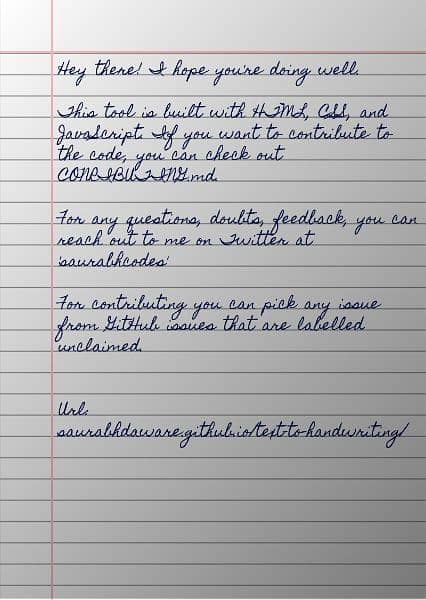 Hey there! I hope you're doing well.
This tool is built with HTML, CSS, and
JavaScript. If you want to contribute to
the code, you can check out
CONRIBUTING.md.
For any questions, doubts, feedback, you can
reach out to me on Twitter at
'saurabhcodes'
For contributing you can pick any issue
from GitHub issues that are labelled
unclaimed.
Url:
saurabhdaware.github.io/text-to-handwriting/